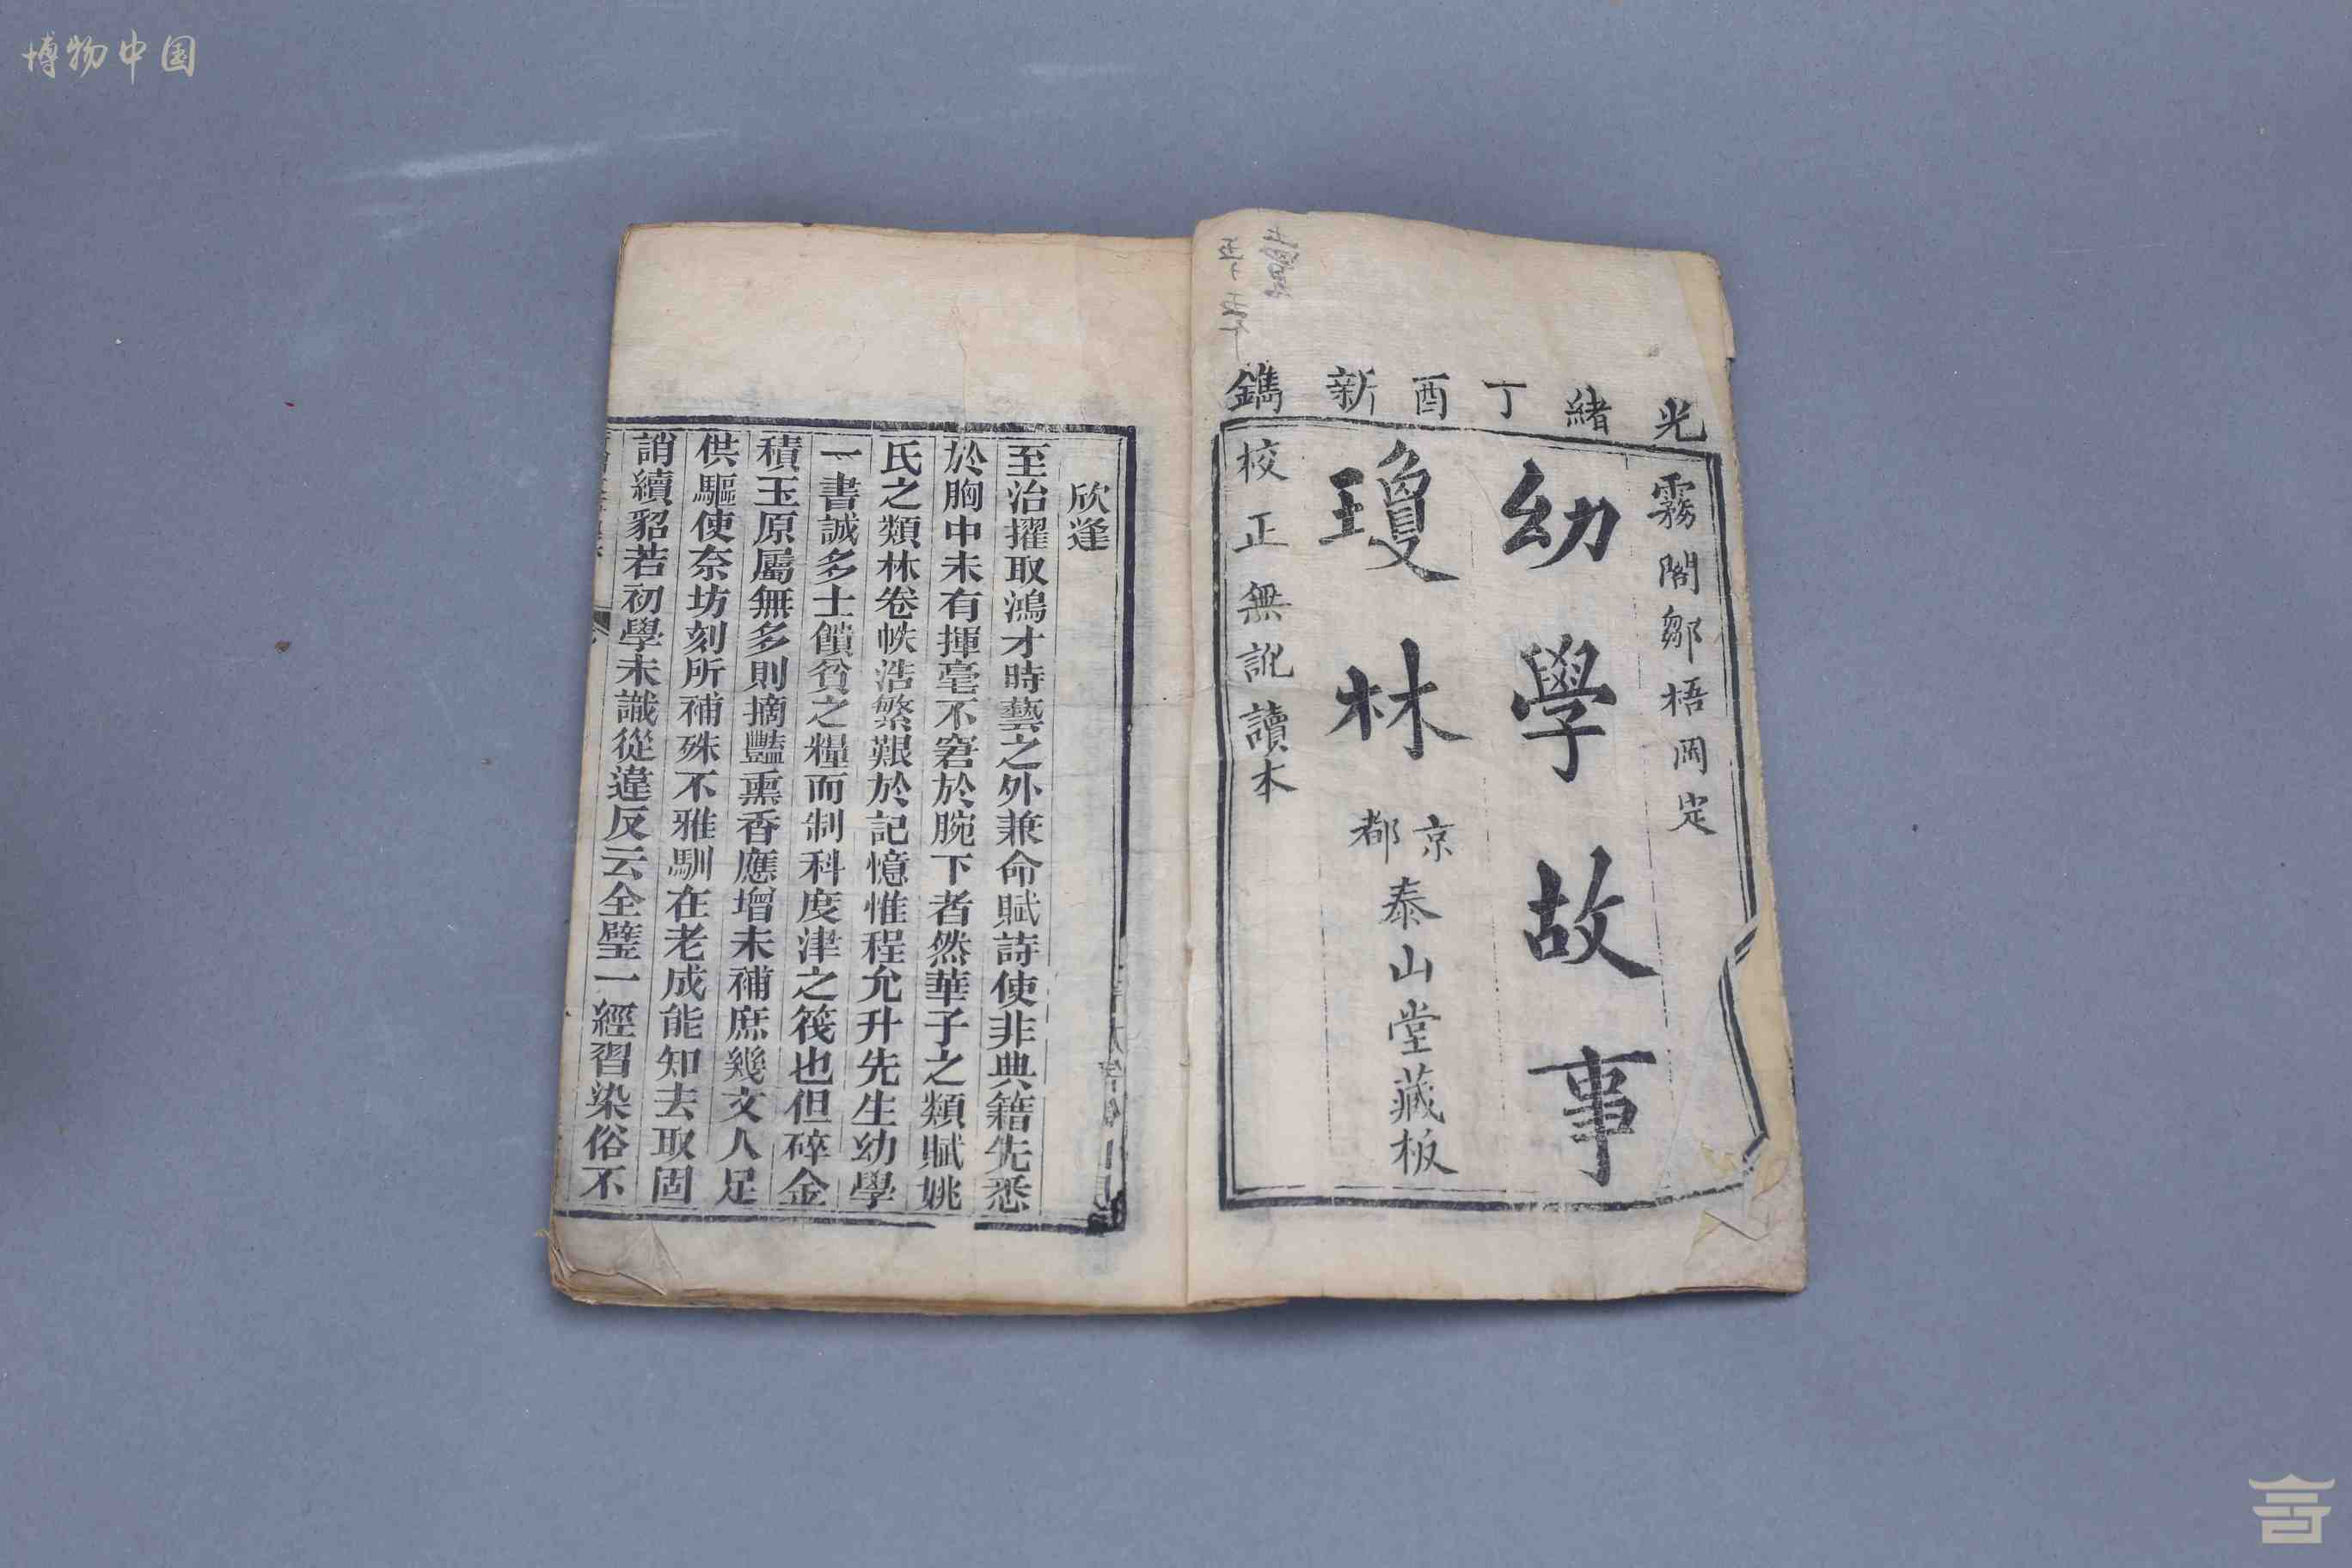 博物中国
光緒丁酉新鐫
霧閣鄒梧岡定
幼學故事
瓊林
京都
泰山堂藏板
校正無訛讀本
欣逢
至治擢取鴻才時藝之外兼命賦詩使非典籍先悉
於胸中未有揮毫不窘於腕下者然華子之類賦姚
氏之類林卷帙浩繁艱於記憶惟程允升先生幼學
一書誠多士饋貧之糧而制科度津之筏也但碎金
積玉原屬無多則摘豔熏香應增未補庶幾文人足
供驅使奈坊刻所補殊不雅馴在老成能知去取固
誚續貂若初學未識從違反云全璧一經習染俗不